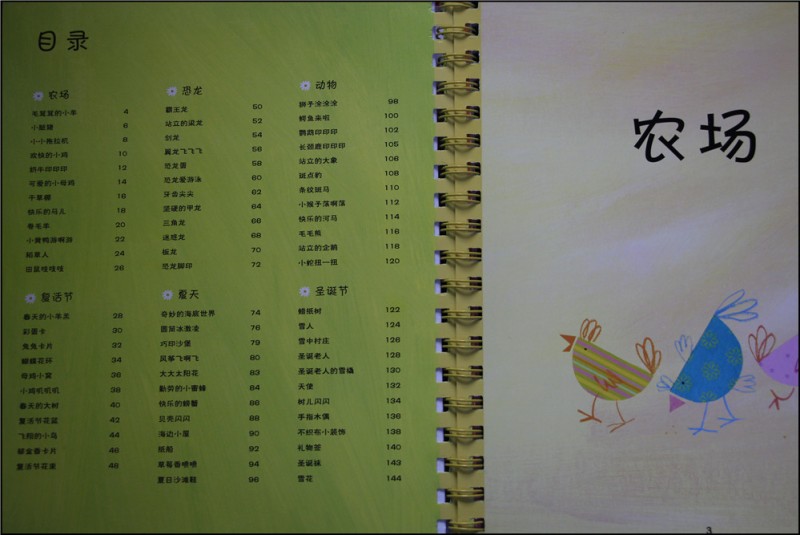 目录
农场
毛茸茸的小羊 4
小腿腿 6
小小拖拉机 8
欢快的小鸡 10
奶牛印印印 12
可爱的小母鸡 14
干草棚 16
快乐的马儿 18
卷毛羊 20
小黄鸭游啊游 22
稻草人 24
田鼠哇哇哇 26
复活节
春天的小羊羔 28
彩蛋卡 30
兔兔卡片 32
蝴蝶花环 34
母鸡小窝 36
小鸡叽叽叽 38
春天的大树 40
复活节花篮 42
飞翔的小鸟 44
郁金香卡片 46
复活节花束 48
恐龙
霸王龙 50
站立的梁龙 52
剑龙 54
翼龙飞飞飞 56
恐龙蛋 58
恐龙爱游泳 60
牙齿尖尖 62
坚硬的甲龙 64
三角龙 66
迷惑龙 68
振龙 70
恐龙脚印 72
夏天
奇妙的海底世界 74
圆筒冰激凌 76
巧印沙堡 79
风筝飞啊飞 80
太太太阳花 83
勤劳的小蜜蜂 84
快乐的螃蟹 86
贝壳闪闪 88
海边小屋 90
纸船 92
草莓香喷喷 94
夏日沙滩鞋 96
动物
狮子涂涂涂 98
鳄鱼来啦 100
鹦鹉印印印 102
长颈鹿印印印 105
站立的大象 106
斑点豹 108
条纹斑马 110
小猴子荡啊荡 112
快乐的河马 114
毛毛熊 116
站立的企鹅 118
小蛇扭一扭 120
圣诞节
蜡纸树 122
雪人 124
雪中村庄 126
圣诞老人 128
圣诞老人的雪橇 130
天使 132
树儿闪闪 134
手指木偶 136
不织布小装饰 138
礼物签 140
圣诞袜 143
雪花 144
农场
3